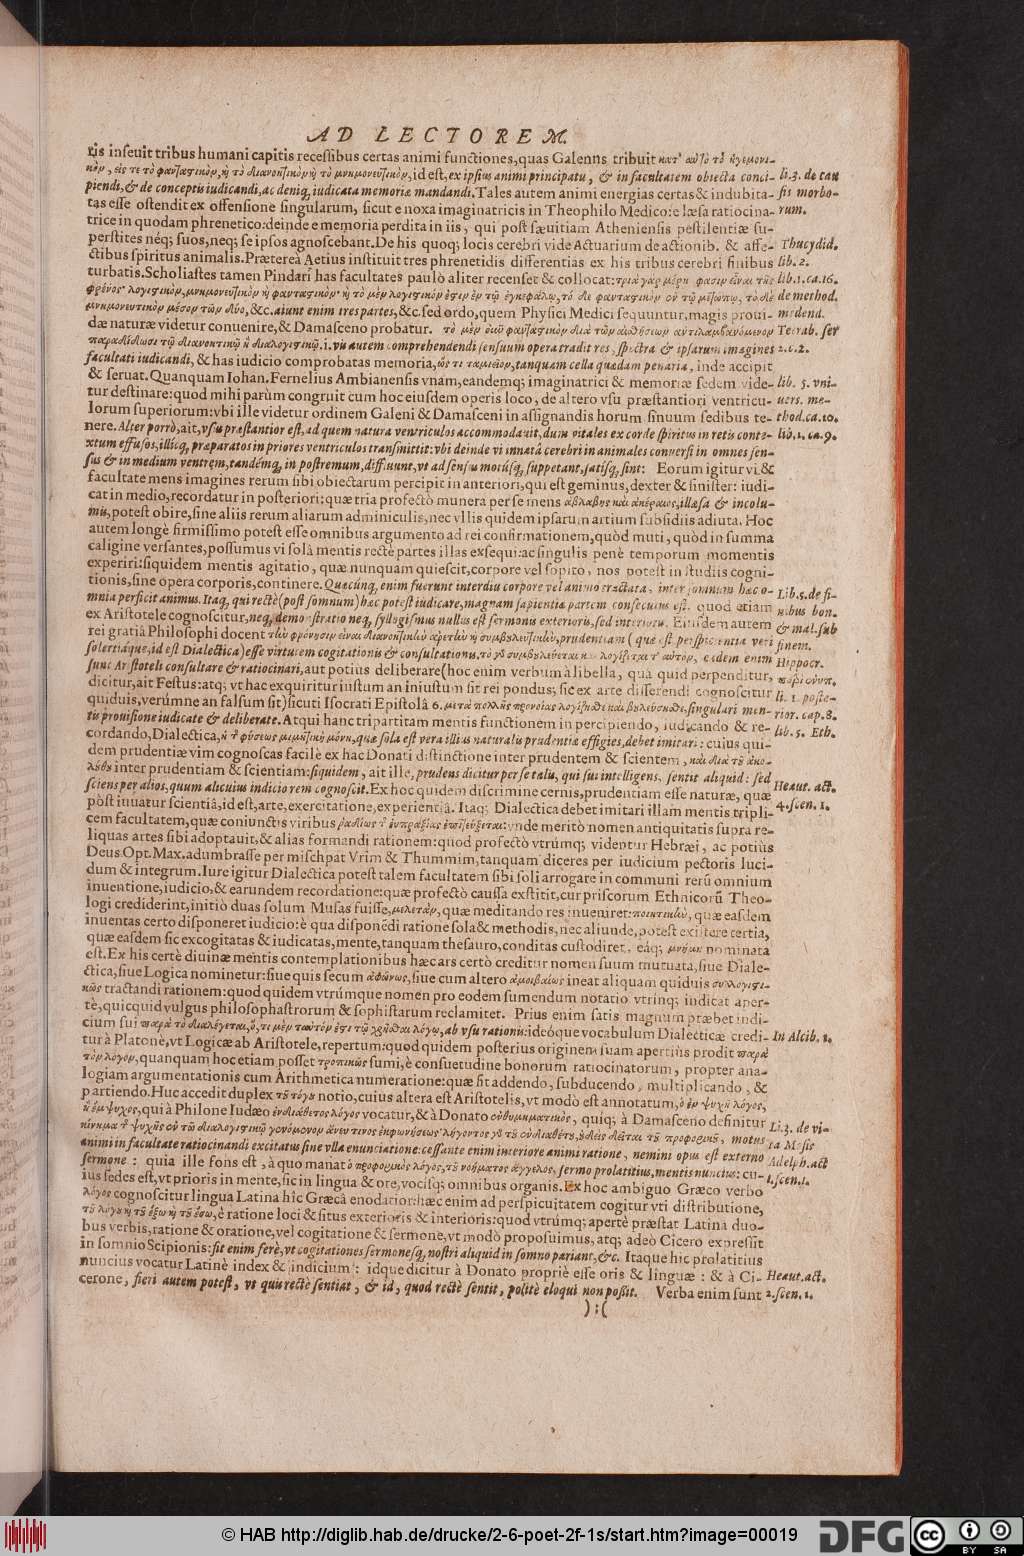 AD LECTOREM.
ris inseuit tribus humani capitis recessibus certas animi functiones, quas Galenus tribuit κατ' αὐτὸ τὸ ἡγεμονι-
κὸν, εἰς τε τὸ φανταστικὸν, ἢ τὸ διανοητικὸν ἢ τὸ μνημονευτικὸν, id est, ex ipsius animi principatu, & in facultatem obiecta conci-
li.3. de cau
piendi, & de conceptis iudicandi, ac deniq, iudicata memoriæ mandandi. Tales autem animi energias certas & indubita-
sis morbo-
tas esse ostendit ex offensione singularum, sicut e noxa imaginatricis in Theophilo Medico: e læsa ratiocina-
rum.
trice in quodam phrenetico: deinde e memoria perdita in iis, qui post sæuitiam Atheniensis pestilentiæ su-
perstites néq; suos, neq; se ipsos agnoscebant. De his quoq; locis cerebri vide Actuarium de actionib. & affe-
Thucydid.
ctibus spiritus animalis. Prætereà Aetius instituit tres phrenetidis differentias ex his tribus cerebri sinibus
lib. 2.
turbatis. Scholiastes tamen Pindari has facultates paulò aliter recenset & collocat: τρία γὰρ μέρη φασιν εἶναι τῆς
lib.1. ca.16.
φρένος· λογιστικὸν, μνημονευτικὸν ἢ φανταστικὸν· ἢ τὸ μὲν λογιστικὸν ἐστιν ἐν τῷ ἐγκεφάλῳ, τὸ δὲ φανταστικὸν
de method.
μνημονευτικὸν μέσον τῶν δύο, &c. aiunt enim tres partes, &c. sed ordo, quem Physici Medici sequuntur, magis proui-
medend.
dæ naturæ videtur conuenire, & Damasceno probatur. τὸ μὲν φανταστικὸν διὰ τῶν αἰσθήσεων ἀντιλαμβανόμενον
Tetrab. ser
παραδίδωσι τῷ διανοητικῷ ἢ διαλογιστικῷ. i. vis autem comprehendendi sensuum opera tradit res, spectra & ipsarum imagines
2. c. 2.
facultati iudicandi, & has iudicio comprobatas memoria, ὥς τι ταμιεῖον, tanquam cella quædam penaria, inde accipit
& seruat. Quanquam Iohan. Fernelius Ambianensis vnam, eandemq; imaginatrici & memoriæ sedem vide-
lib. 5. vni-
tur destinare: quod mihi parùm congruit cum hoc eiusdem operis loco, de altero vsu præstantiori ventricu-
uers. me-
lorum superiorum: vbi ille videtur ordinem Galeni & Damasceni in assignandis horum sinuum sedibus te-
thod. ca.10.
nere. Alter porrò, ait, vsu præstantior est, ad quem natura ventriculos accommodauit, dum vitales ex corde spiritus in retis conte-
lib. 1. ca. 9.
xtum effusos, illicq, præparatos in priores ventriculos transmittit: vbi deinde vi innatâ cerebri in animales conuersi in omnes sen-
sus & in medium ventrem, tandémq, in postremum, diffluunt, vt ad sensus motúsq, suppetant, satisq, sint: Eorum igitur vi &
facultate mens imagines rerum sibi obiectarum percipit in anteriori, qui est geminus, dexter & sinister: iudi-
cat in medio, recordatur in posteriori: quæ tria profectò munera per se mens ἀβλαβὴς καὶ ἀκέραιος, illæsa & incolu-
mis, potest obire, sine aliis rerum aliarum adminiculis, nec vllis quidem ipsarum artium subsidiis adiuta. Hoc
autem longè firmissimo potest esse omnibus argumento ad rei confirmationem, quòd muti, quòd in summa
caligine versantes, possumus vi solâ mentis rectè partes illas exsequi: ac singulis penè temporum momentis
experiri: siquidem mentis agitatio, quæ nunquam quiescit, corpore vel sopito, nos potest in studiis cogni-
tionis, sine opera corporis, continere. Quæcúnq, enim fuerunt interdiu corpore vel animo tractata, inter somnum hæc o-
Lib.5. de si-
mnia perficit animus. Itaq, qui rectè (post somnum) hæc potest iudicare, magnam sapientiæ partem consecutus est. quod etiam
nibus bon.
ex Aristotele cognoscitur, neq, demonstratio neq, syllogismus nullus est sermonis exterioris, sed interioris. Eiusdem autem
& mal. sub
rei gratiâ Philosophi docent τὴν φρόνησιν εἶναι διανοητικὴν ἀρετὴν ἢ συμβουλευτικὴν, prudentiam (quæ est perspicientia veri
finem.
solertiáque, id est Dialectica) esse virtutem cogitationis & consultationis, τὸ γὰρ συμβουλεύεται καὶ λογίζεται τ' αὐτὸν, eædem enim
Hippocr.
sunt Aristoteli consultare & ratiocinari, aut potius deliberare (hoc enim verbum à libella, quâ quid perpenditur,
dicitur, ait Festus: atq; vt hac exquiritur iustum an iniustum sit rei pondus; sic ex arte differendi cognoscitur
li. 1. poste-
quiduis, verúmne an falsum sit) sicuti Isocrati Epistolâ 6. μετὰ πολλῆς προνοίας λογίζεσθαι καὶ βουλεύεσθαι, singulari men-
rior. cap. 8.
tis prouisione iudicate & deliberate. Atqui hanc tripartitam mentis functionem in percipiendo, iudicando & re-
lib. 5. Eth.
cordando, Dialectica, ἡ τ̃ φύσεως μιμητικὴ μόνη, quæ sola est vera illius naturalis prudentiæ effigies, debet imitari: cuius qui-
dem prudentiæ vim cognoscas facilè ex hac Donati distinctione inter prudentem & scientem,
inter prudentiam & scientiam: siquidem, ait ille, prudens dicitur per se talis, qui sui intelligens, sentit aliquid: sed
sciens per alios, quum alicuius indicio rem cognoscit. Ex hoc quidem discrimine cernis, prudentiam esse naturæ, quæ
Heaut. act.
pòst iuuatur scientiâ, id est, arte, exercitatione, experientiâ. Itaq; Dialectica debet imitari illam mentis tripli-
4. scen. 1.
cem facultatem, quæ coniunctis viribus ῥᾳδίως τ̃ εὐπραξίας ἐπιζεύξεται: vnde meritò nomen antiquitatis supra re-
liquas artes sibi adoptauit, & alias formandi rationem: quod profectò vtrúmq; videntur Hebræi, ac potiùs
Deus Opt. Max. adumbrasse per mischpat Vrim & Thummim, tanquam diceres per iudicium pectoris luci-
dum & integrum. Iure igitur Dialectica potest talem facultatem sibi soli arrogare in communi rerū omnium
inuentione, iudicio, & earundem recordatione: quæ profectò caussa exstitit, cur priscorum Ethnicorū Theo-
logi crediderint, initio duas solum Musas fuisse, μελετὰν, quæ meditando res inueniret: ποιητικὴν, quæ easdem
inuentas certo disponeret iudicio: è qua disponēdi ratione sola & methodis, nec aliunde, potest existere tertia,
quæ easdem sic excogitatas & iudicatas, mente, tanquam thesauro, conditas custodiret, eáq; μνήμη nominata
est. Ex his certè diuinæ mentis contemplationibus hæc ars certò creditur nomen suum mutuata, siue Diale-
ctica, siue Logica nominetur: siue quis secum ἀφώνως, siue cum altero ἀμοιβαίως ineat aliquam quiduis συλλογιστι-
κῶς tractandi rationem: quod quidem vtrúmque nomen pro eodem sumendum notatio vtrinq; indicat aper-
tè, quicquid vulgus philosophastrorum & sophistarum reclamitet. Prius enim satis magnum præbet indi-
cium sui παρὰ τὸ διαλέγεται, ὅ, τι μὲν ταυτὸν ἐστι τῷ χρῆσθαι λόγῳ, ab vsu rationis: ideóque vocabulum Dialecticæ credi-
In Alcib. 1.
tur à Platone, vt Logicæ ab Aristotele, repertum: quod quidem posterius originem suam apertiùs prodit παρὰ
τὸν λόγον, quanquam hoc etiam posset τροπικῶς sumi, è consuetudine bonorum ratiocinatorum, propter ana-
logiam argumentationis cum Arithmetica numeratione: quæ fit addendo, subducendo, multiplicando, &
partiendo. Huc accedit duplex τοῦ λόγου notio, cuius altera est Aristotelis, vt modò est annotatum, ὁ ἐν ψυχῇ λόγος,
ἢ ἔμψυχος, qui à Philone Iudæo ἐνδιάθετος λόγος vocatur, & à Donato ἐνθυμηματικὸς, quiq; à Damasceno definitur
Li.3. de vi-
κίνημα τ̃ ψυχῆς ἐν τῷ διαλογιστικῷ γενόμενον ἄνευ τινος ἐκφωνήσεως· motus
ta Mosis
animi in facultate ratiocinandi excitatus sine vlla enunciatione: cessante enim interiore animi ratione, nemini opus est externo
Adelph. act
sermone: quia ille fons est, à quo manat ὁ προφορικὸς λόγος, τοῦ νοήματος ἄγγελος, sermo prolatitius, mentis nuncius: cu-
1. scen. 1.
ius sedes est, vt prioris in mente, sic in lingua & ore, vocisq; omnibus organis. Ex hoc ambiguo Græco verbo
λόγος cognoscitur lingua Latina hîc Græcâ enodatior: hæc enim ad perspicuitatem cogitur vti distributione,
τοῦ λόγου ἢ τοῦ ἔξω ἢ τοῦ ἔσω, è ratione loci & situs exterioris & interioris: quod vtrúmq; apertè præstat Latina duo-
bus verbis, ratione & oratione, vel cogitatione & sermone, vt modò proposuimus, atq; adeò Cicero expressit
in somnio Scipionis: fit enim ferè, vt cogitationes sermonesq, nostri aliquid in somno pariant, &c. Itaque hic prolatitius
nuncius vocatur Latinè index & indicium: idque dicitur à Donato propriè esse oris & linguæ: & à Ci-
Heaut. act.
cerone, fieri autem potest, vt quis rectè sentiat, & id, quod rectè sentit, politè eloqui non possit. Verba enim sunt
2. scen. 1.
):(
© HAB http://diglib.hab.de/drucke/2-6-poet-2f-1s/start.htm?image=00019
DFG
cc
BY SA